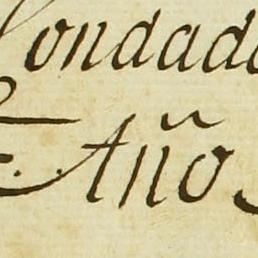 Condado
Año